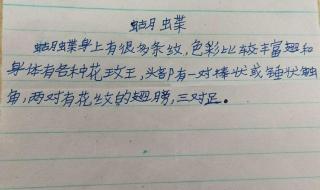 蝴蝶
蝴蝶身上有很多条纹,色彩比较丰富翅和
身体有各种花斑,头部有一对棒状或锤状触
角,两对有花纹的翅膀,三对足。